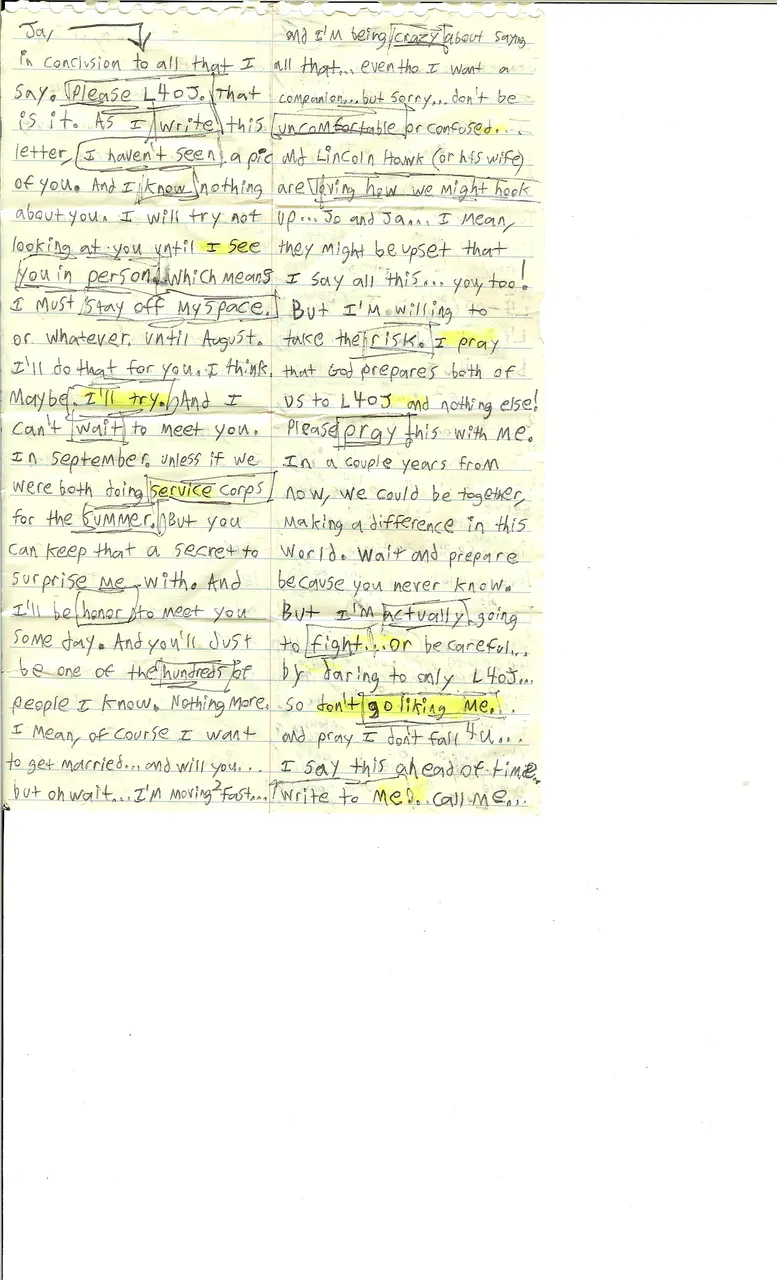 Ja,
in conclusion to all that I
say. Please L4OJ. That
is it. As I write this
letter, I haven't seen a pic
of you. And I know nothing
about you. I will try not
looking at you until I see
you in person. Which means
I must stay off Myspace.
or whatever. until August.
I'll do that for you. I think.
Maybe. I'll try. And I
can't wait to meet you.
In September. unless if we
were both doing service corps
for the summer. But you
can keep that a secret to
surprise me with. And
I'll be honor to meet you
some day. And you'll Just
be one of the hundreds of
people I know. Nothing More.
I mean, of course I want
to get married... and will you...
but oh wait... I'm moving 2 fast...
and I'm being crazy about saying
all that... eventho I want a
companion... but sorry... don't be
uncomfortable or confused...
and Lincoln Hawk (or his wife)
are loving how we might hook
up... Jo and Ja... I mean,
they might be upset that
I say all this... you, too!
But I'm willing to
take the risk. I pray
that God prepares both of
us to L4OJ and nothing else!
Please pray this with me.
In a couple years from
now, we could be together,
making a difference in this
world. Wait and prepare
because you never know.
But I'm actually going
to fight... or be careful...
by daring to only L4OJ...
so don't go liking me...
and pray I don't fall 4u...
I say this ahead of time...
write to me?.. call me...